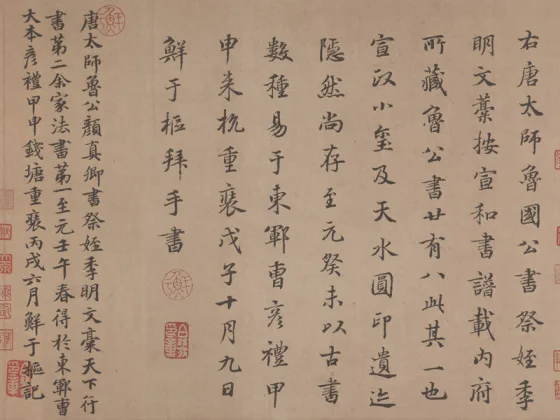 右唐太師魯國公書祭姪季
明文藁按宣和書譜載內府
所藏魯公書廿有八此其一也
宣政小璽及天水圓印遺迹
隱然尚存至元癸未以古書
數種易于東鄆曹彦禮甲
申來杭重裝戊子十月九日
鮮于樞拜手書
唐太師魯公顏真卿書祭姪季明文藁天下行
書第二余家法書第一至元壬午春得於東鄆曹
大本彦禮甲申錢塘重裝丙戌六月鮮于樞記